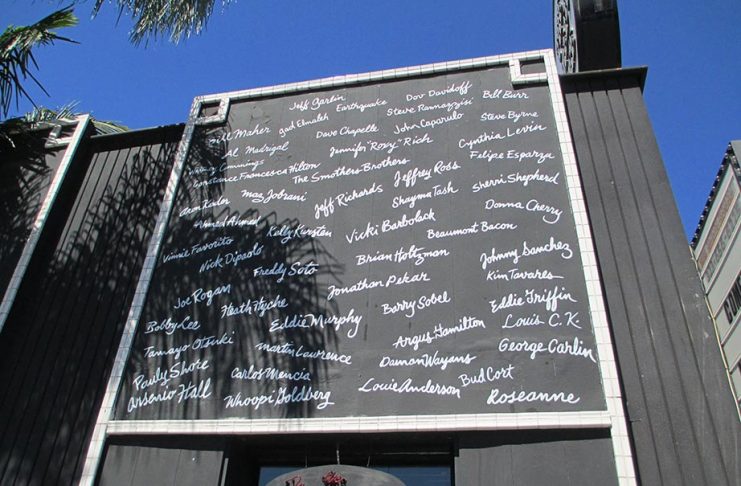 Jeff Garlin Dov Davidoff Bill Burr
Bill Maher Gad Elmaleh Earthquake Steve Rannazzisi Steve Byrne
Al Madrigal Dave Chapelle John Caparulo
Whitney Cummings Jennifer "Roxy" Rich Cynthia Levin
Constance Francesca Hilton The Smothers Brothers Felipe Esparza
Aron Kader Maz Jobrani Jeffrey Ross Sherri Shepherd
Ahmed Ahmed Jeff Richards Shayma Tash Donna Cherry
Vinnie Favorito Kelly Kirsten Vicki Barbolack Beaumont Bacon
Nick Dipaolo Brian Holtzman Johnny Sanchez
Freddy Soto Jonathan Pekar Kim Tavares
Joe Rogan Barry Sobel Eddie Griffin
Bobby Lee Eddie Murphy Argus Hamilton Louis C.K.
Tamayo Otsuki Martin Lawrence Damon Wayans George Carlin
Pauly Shore Carlos Mencia Bud Cort
Arsenio Hall Whoopi Goldberg Louie Anderson Roseanne